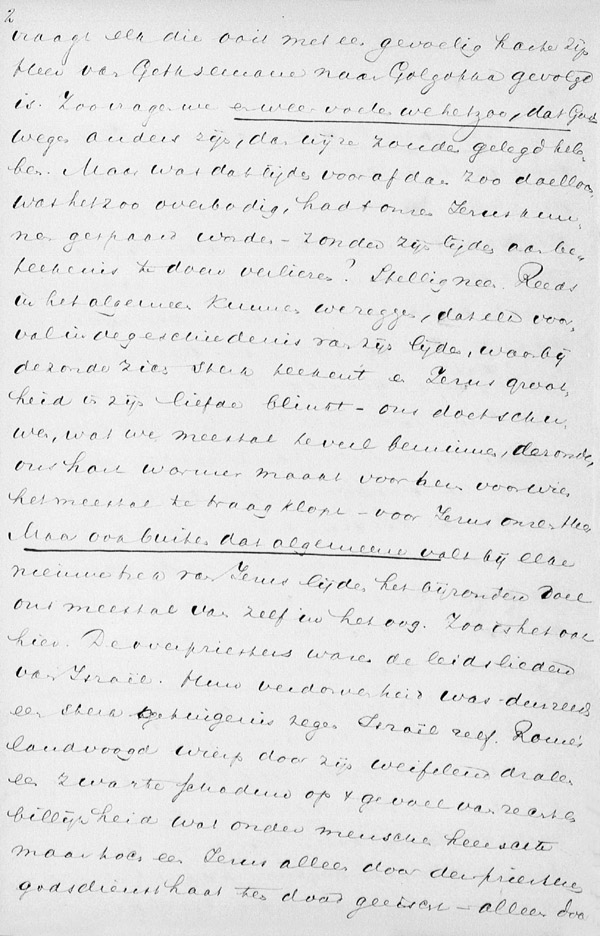 2
vraagt elk die ooit met een gevoelig harte zijn
Heer van Gethsemane naar Golgotha gevolgd
is. Zoo vragen we en weer we het zoo, dat Gods
wegen anders zijn, dan wij ze zouden gelegd heb-
ben. Maar was dat lijden vooraf dan zoo doelloos,
was het zoo overbodig, had 't onzen Jezus kun-
nen gespaard worden – zonder zijn lijden aan be-
teekenis te doen verliezen? Stellig neen. Reeds
in het algemeen kunnen we zeggen, dat elk voor-
val in de geschiedenis van zijn lijden, waarbij
de zonde zich sterk teekent en Jezus groot-
heid in zijn liefde blinkt – ons doet schu-
wen, wat we meestal te veel beminnen, de zonde,
ons hart warmer maakt voor hem voor wien
het meestal te traag klopt – voor Jezus onzen Heer
Maar ook buiten dat algemeene valt bij elke
nieuwe trek van Jezus lijden het bijzondere doel
ons meestal van zelf in het oog. Zoo is het ook
hier. De overpriesters waren de leidslieden
van Israël. Hun verdorvenheid was dus reeds
een sterk getuigenis tegen Israël zelf. Rome's
landvoogd wierp door zijn weifelend dralen
een zwarte schaduw op 't gevoel van recht en
billijkheid wat onder menschen heerschte
maar toch een Jezus alleen door den priesterlijken
godsdiensthaat ten dood geëischt – alleen door